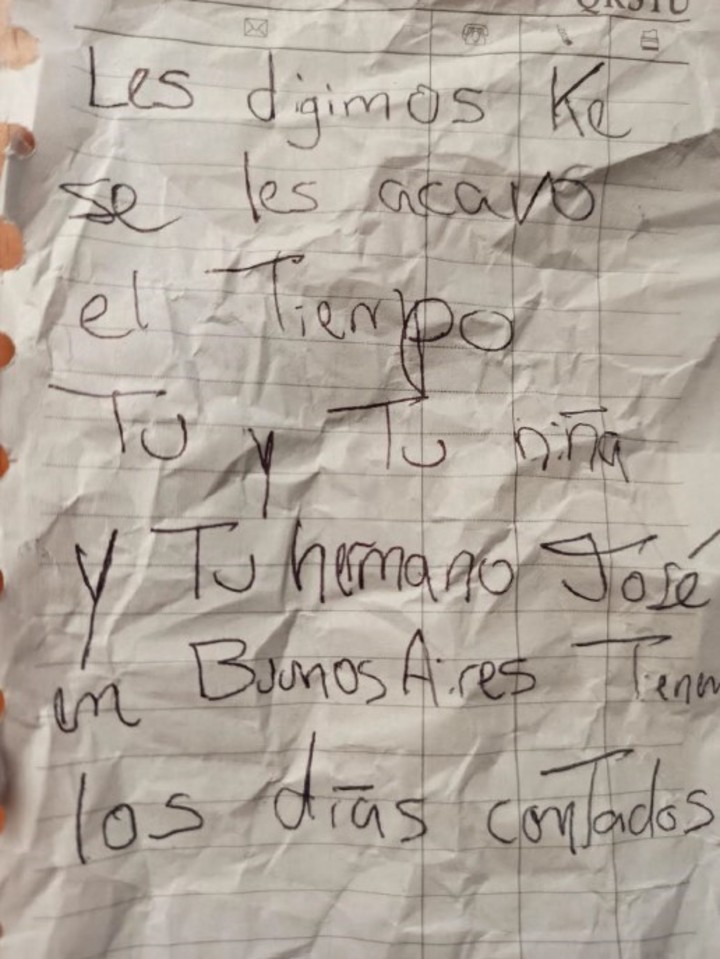 QRSTU
Les digimos Ke
se les acavo
el Tienpo
Tu y Tu niña
y Tu hermano José
en Buenos Aires Tienen
los días contados